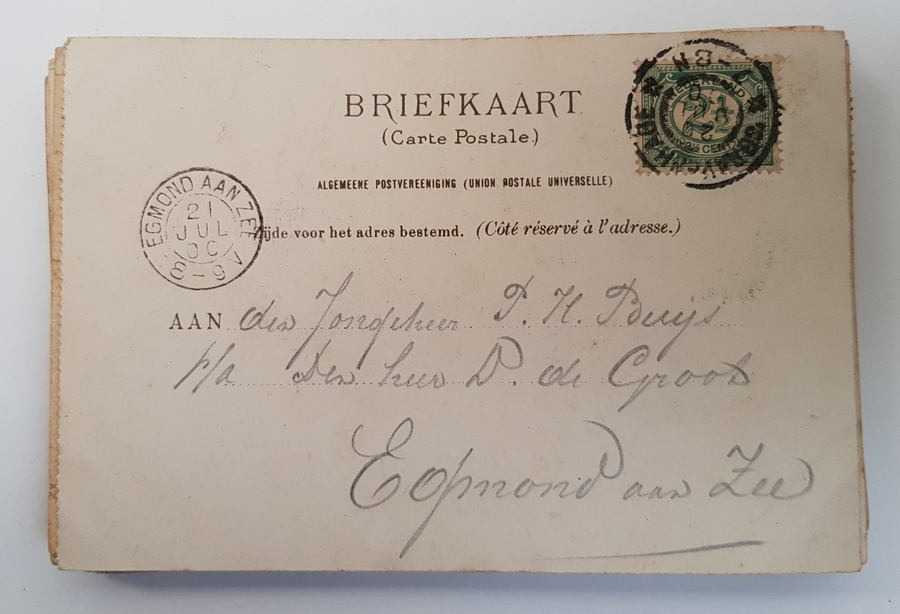 BRIEFKAART
(Carte Postale.)
ALGEMEENE POSTVEREENIGING (UNION POSTALE UNIVERSELLE)
Zijde voor het adres bestemd. (Côté réservé à l'adresse.)
NEDERLAND
2½
CENT
EGMOND AAN ZEE
21
JUL
00
8-9 V
AAN den Jongeheer P. H. Buijs
p/a Den heer D. de Groot
Egmond aan Zee